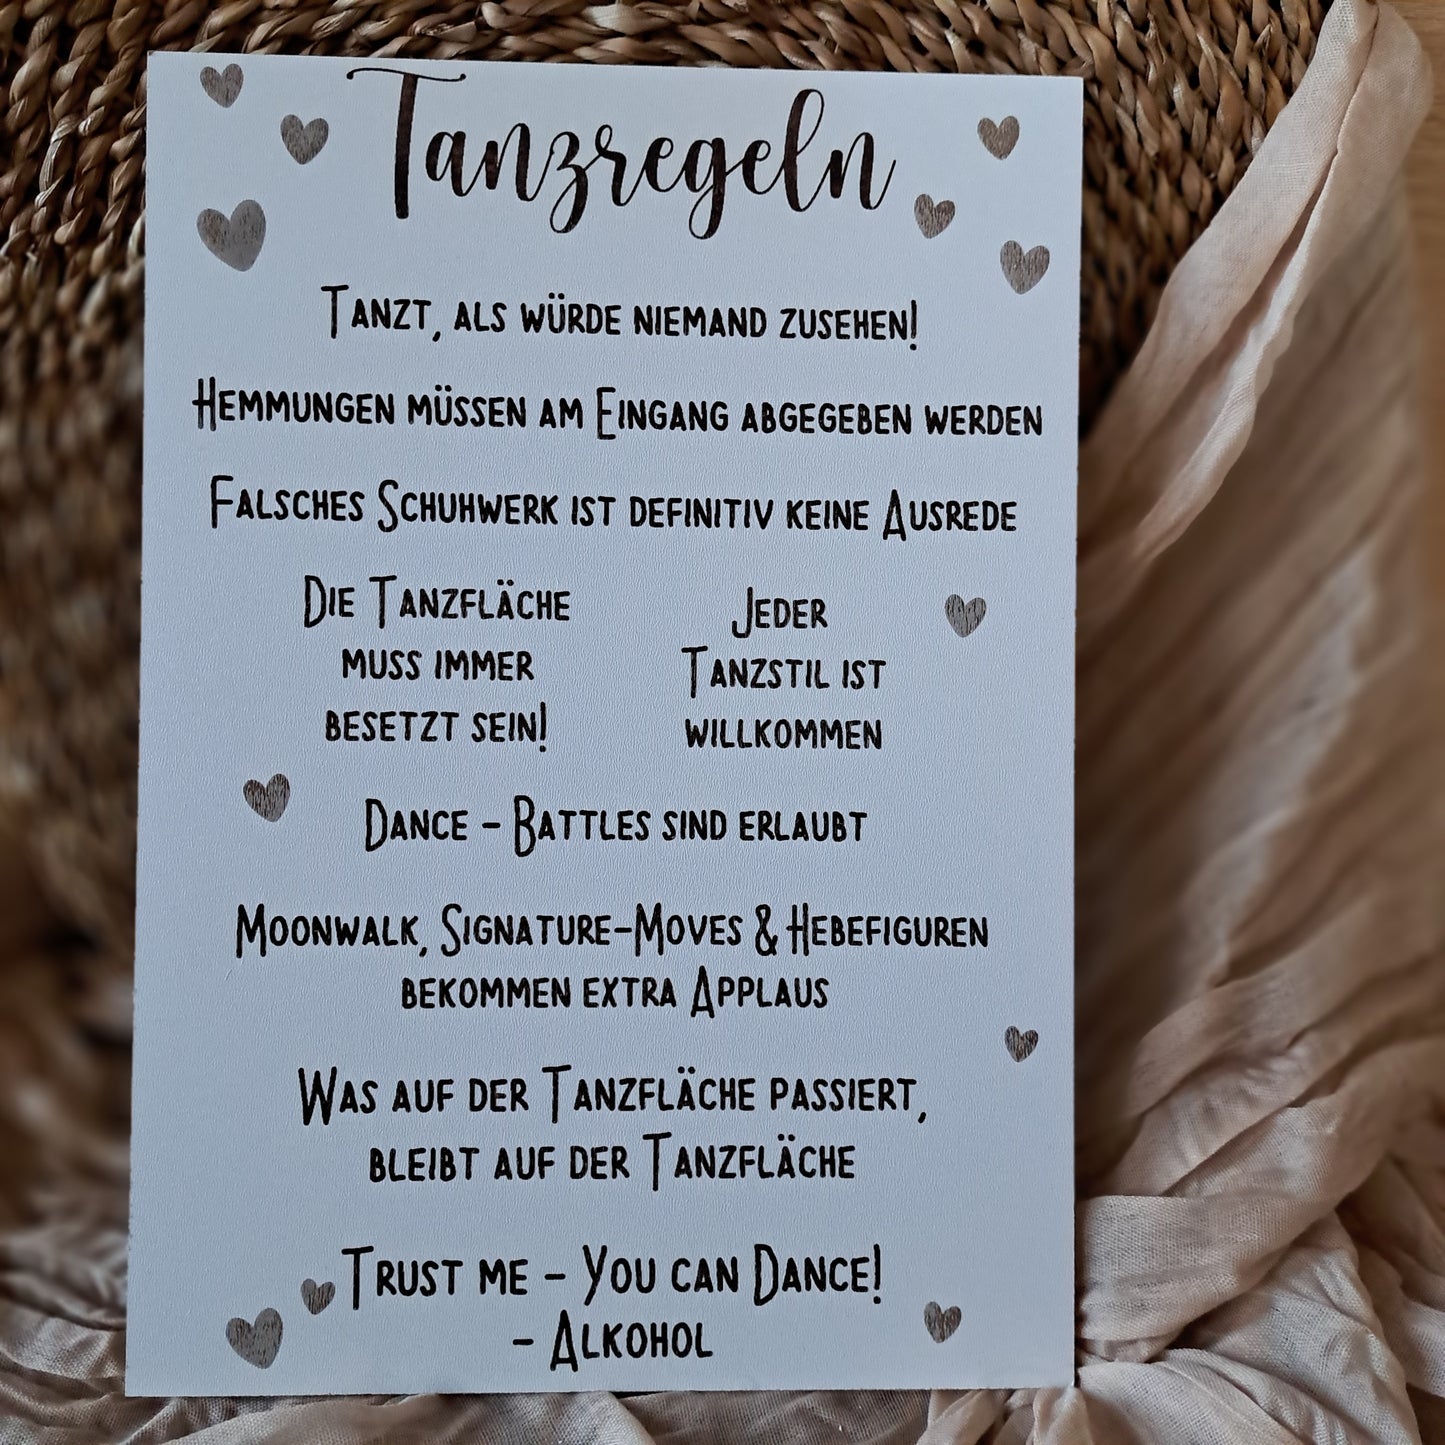 Tanzregeln
Tanzt, als würde niemand zusehen!
Hemmungen müssen am Eingang abgegeben werden
Falsches Schuhwerk ist definitiv keine Ausrede
Die Tanzfläche
muss immer
besetzt sein!
Jeder
Tanzstil ist
willkommen
Dance - Battles sind erlaubt
Moonwalk, Signature-Moves & Hebefiguren
bekommen extra Applaus
Was auf der Tanzfläche passiert,
bleibt auf der Tanzfläche
Trust me - You can Dance!
- Alkohol